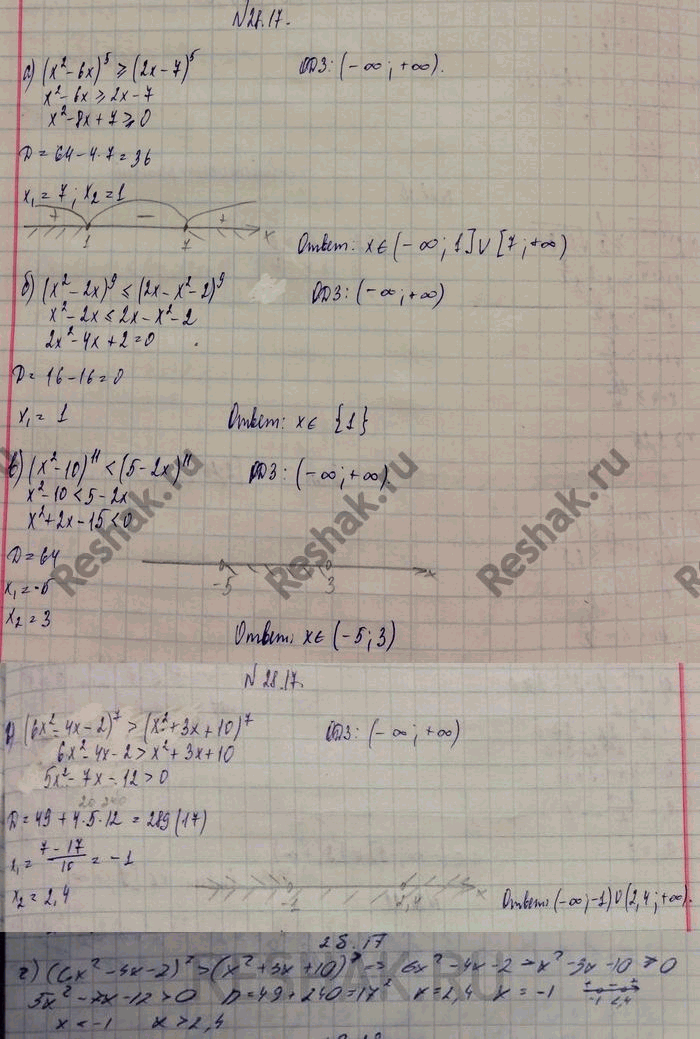 N28.17.
а) (x²-6x)⁵ ≥ (2x-7)⁵ ОДЗ: (-∞; +∞).
x²-6x ≥ 2x-7
x²-8x+7 ≥ 0
D = 64-4·7 = 36
x₁ = 7; x₂ = 1
+ - +
1 7 x
Ответ: x∈(-∞; 1]∪[7; +∞)
б) (x²-2x)⁹ ≤ (2x-x²-2)⁹ ОДЗ: (-∞; +∞)
x²-2x ≤ 2x-x²-2
2x²-4x+2=0
D = 16-16=0
x₁ = 1 Ответ: x∈ {1}
в) (x²-10)¹¹ < (5-2x)¹¹ ОДЗ: (-∞; +∞).
x²-10 < 5-2x
x²+2x-15<0
D = 64
x₁ = -5
-5 3 x
x₂ = 3
Ответ: x∈(-5; 3)
Reshak.ru Reshak.ru
N 28.17.
(6x²-4x-2)⁷ > (x²+3x+10)⁷ ОДЗ: (-∞; +∞)
6x²-4x-2 > x²+3x+10
5x²-7x-12 > 0
D = 49+4·5·12 = 289 (17)
x₁ = (7-17)/10 = -1
-1 2,4 x
x₂ = 2,4 Ответ: (-∞; -1)∪(2,4; +∞).
28.17
г) (6x²-4x-2)⁷ > (x²+3x+10)⁷ => 6x²-4x-2-x²-3x-10 > 0
5x²-7x-12>0 D=49+240=17² x=2,4 x=-1 -1 2,4
x<-1 x>2,4